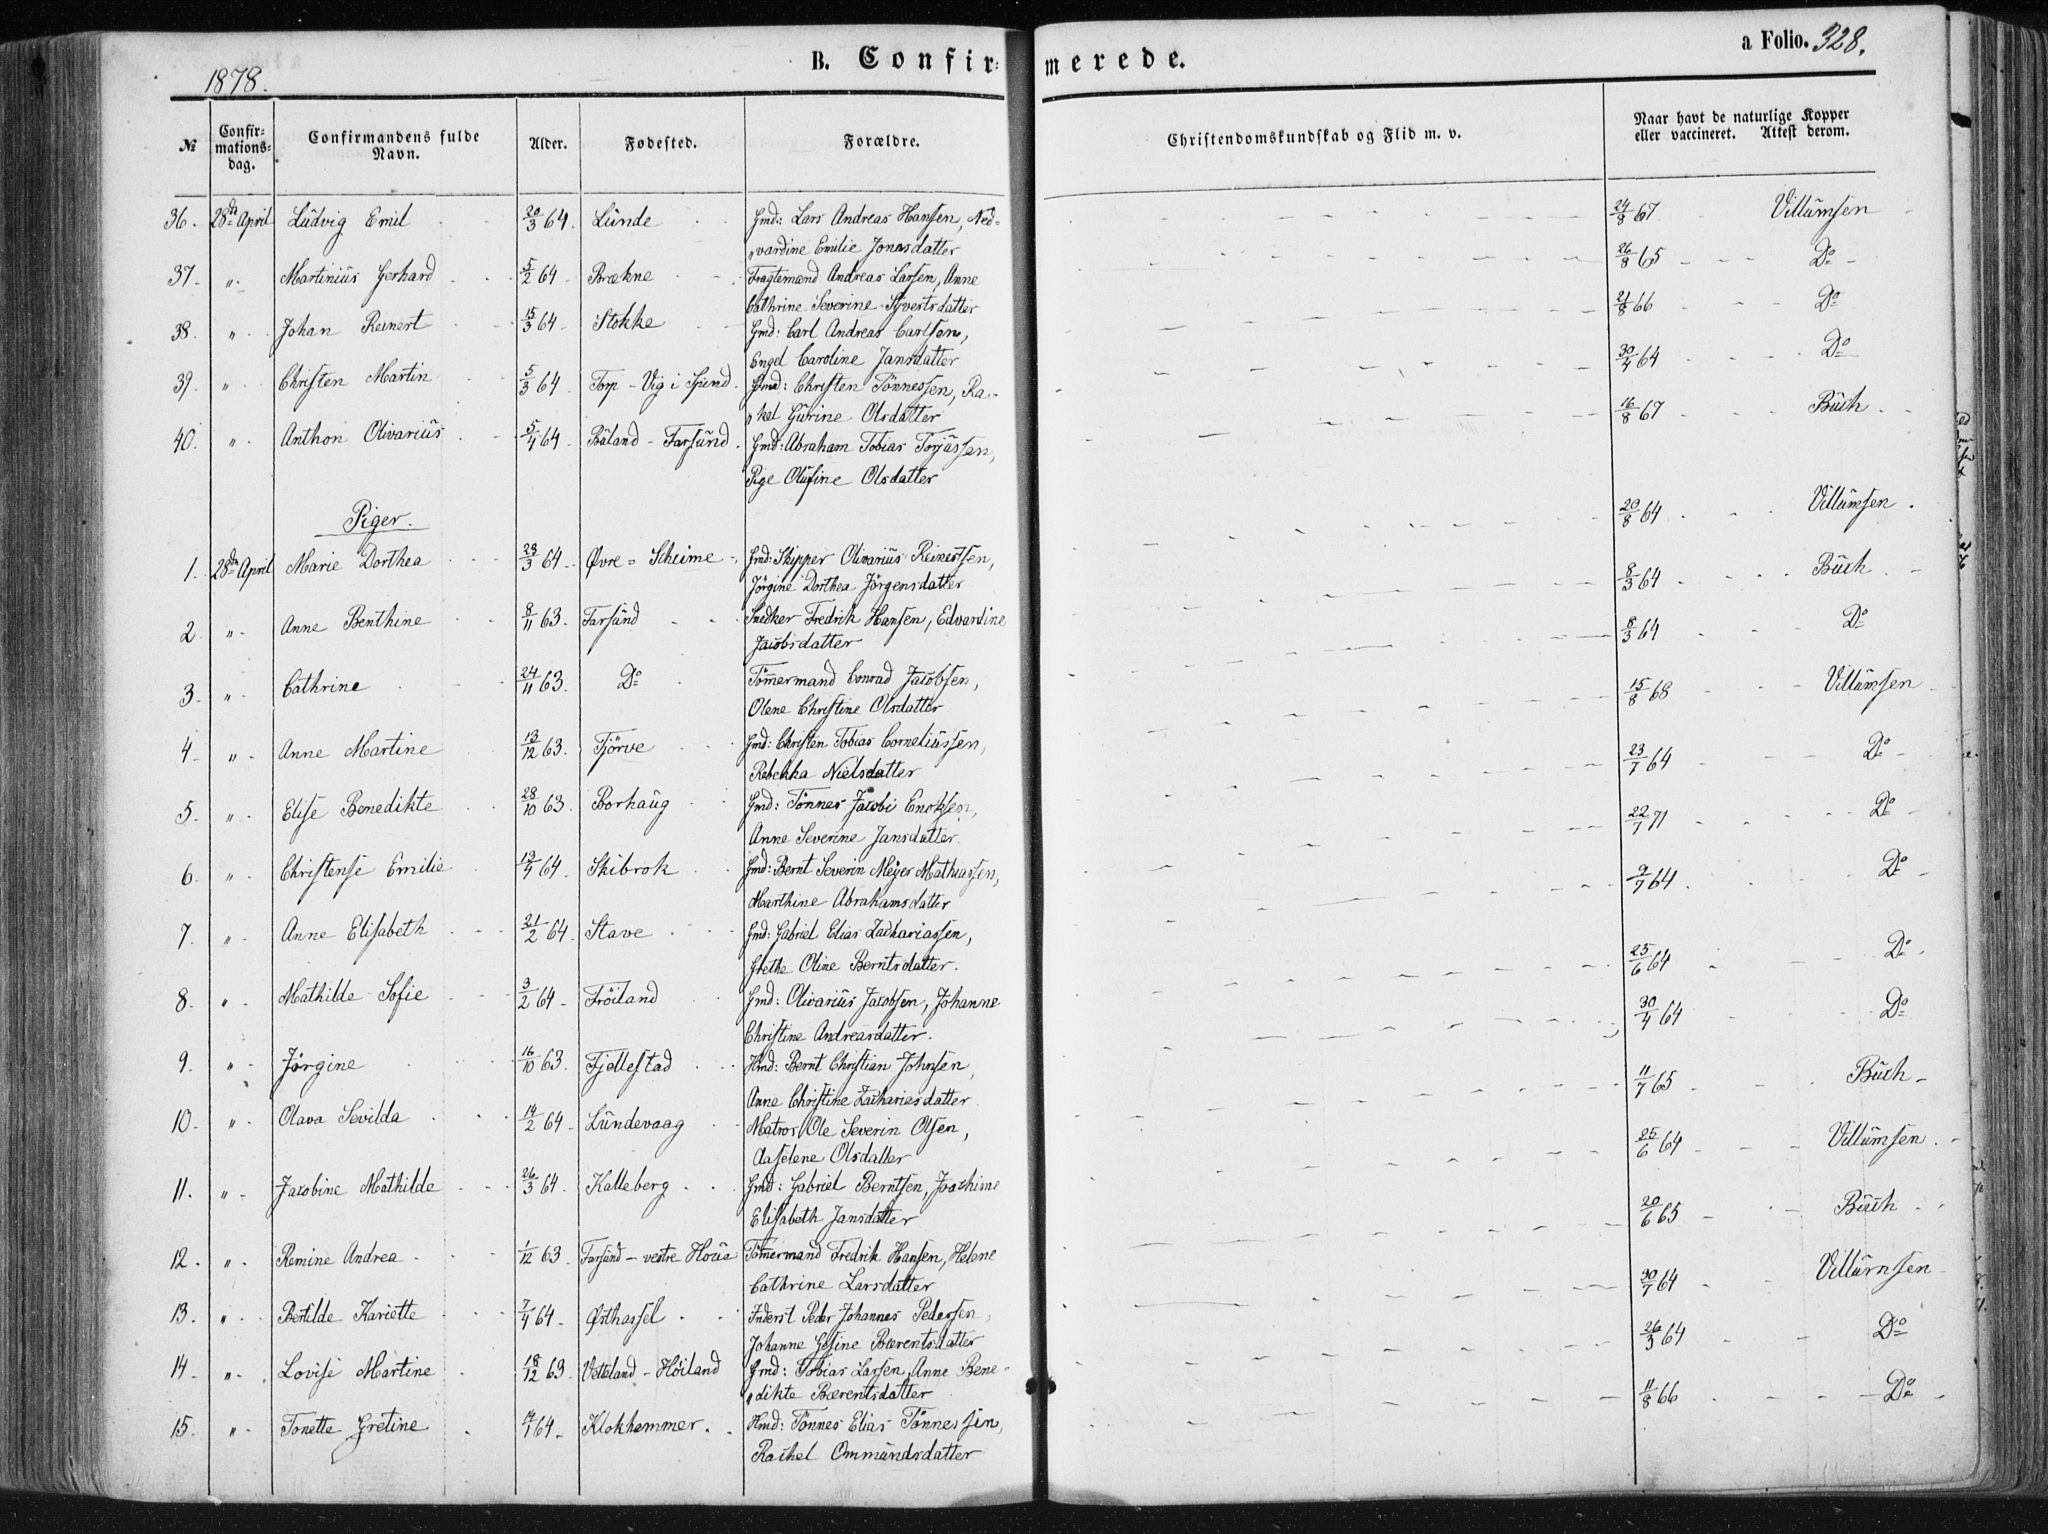 B. Confir- merede.
a Folio. 328.
1878.
№ Confir-mations-dag. Confirmandens fulde Navn. Alder. Fødested. Forældre. Christendomskundskab og Flid m. v. Naar havt de naturlige Kopper eller vaccineret. Attest derom.
36. 28de April Ludvig Emil 20/3 64. Lunde Gmd: Lars Andreas Hansen, Ned- 24/8 67 Villumsen
„vardine Emilie Jonasdatter
37. „ Martinius Gerhard 5/2 64 Brækne Fragtemand Andreas Larsen, Anne 26/8 65 Do
Cathrine Severine Syvertsdatter
38. „ Johan Reinert 15/3 64 Stokke Gmd: Carl Andreas Carlsen, 21/8 66 Do
Engel Caroline Jansdatter
39. „ Christen Martin 5/3 64 Torp - Vig i Spind Gmd: Christen Tönnessen, Ra- 30/4 64 Do
„kel Gurine Olsdatter
40. „ Anthon Olivarius 5/4 64 Båland - Farsund Gmd: Abraham Tobias Torjussen, 16/8 67 Buch
Pige Olufine Olsdatter
Piger.
1. 28de April Marie Dorthea 23/3 64 Øvre = Skeime Gmd: Skipper Olivarius Reinertsen, 20/8 64 Villumsen
Jörgine Dorthea Jörgensdatter
2. „ Anne Benthine 8/11 63. Farsund Snedker Fredrik Hansen, Edvardine 8/3 64 Buch
Jacobsdatter
3. „ Cathrine 24/11 63. Do Tömmermand Conrad Jacobsen, 8/3 64 Do
Olene Christine Olsdatter
4. „ Anne Martine 13/12 63. Tjörve Gmd: Christen Tobias Corneliussen, 15/8 68 Villumsen
Rebekka Nielsdatter
5. „ Elise Benedikte 28/10 63. Borhaug Gmd: Tönnes Jacobi Enoksen, 23/7 64 Do
Anne Severine Jansdatter
6. „ Christense Emilie 13/4 64 Skibrok Gmd: Bernt Severin Meyer Mathiassen, 22/7 71 Do
Marthine Abrahamsdatter
7. „ Anne Elisabeth 21/2 64. Stave Gmd: Gabriel Elias Zachariassen, 9/7 64 Do
Grethe Oline Berntsdatter.
8. „ Mathilde Sofie 3/2 64 Fröiland Gmd: Olivarius Jacobsen, Johanne 25/6 64 Do
Christine Andreasdatter.
9. „ Jörgine 16/10 63. Fjellestad Hmd: Bernt Christian Johnsen, 30/4 64 Do
Anne Christine Zachariesdatter
10. „ Olava Sevilda 14/2 64 Lundevaag Matros Ole Severin Olsen, 11/7 65 Buch
Aaselene Olsdatter
11. „ Jacobine Mathilde 26/3 64. Kalleberg Gmd: Gabriel Berntsen, Joachime 25/6 64 Villumsen
Elisabeth Jansdatter
12. „ Remine Andrea 1/12 63. Farsund - vestre Houa Tömmermand Fredrik Hansen, Helene 20/6 65 Buch
Cathrine Larsdatter
13. „ Bertilde Kariette 7/4 64 Østhassel Inderst Peder Johannes Pedersen, 30/7 64 Villumsen
Johanne Gesine Bærentsdatter
14. „ Lovise Martine 18/12 63. Vetteland - Höiland Gmd: Tobias Larsen, Anne Bene- 26/3 64 Do
„dikte Bærentsdatter
15. „ Tonette Gretine 14/1 64 Klokhammer Hmd: Tönnes Elias Tönnessen, 11/8 66 Do
Rachel Ommundsdatter